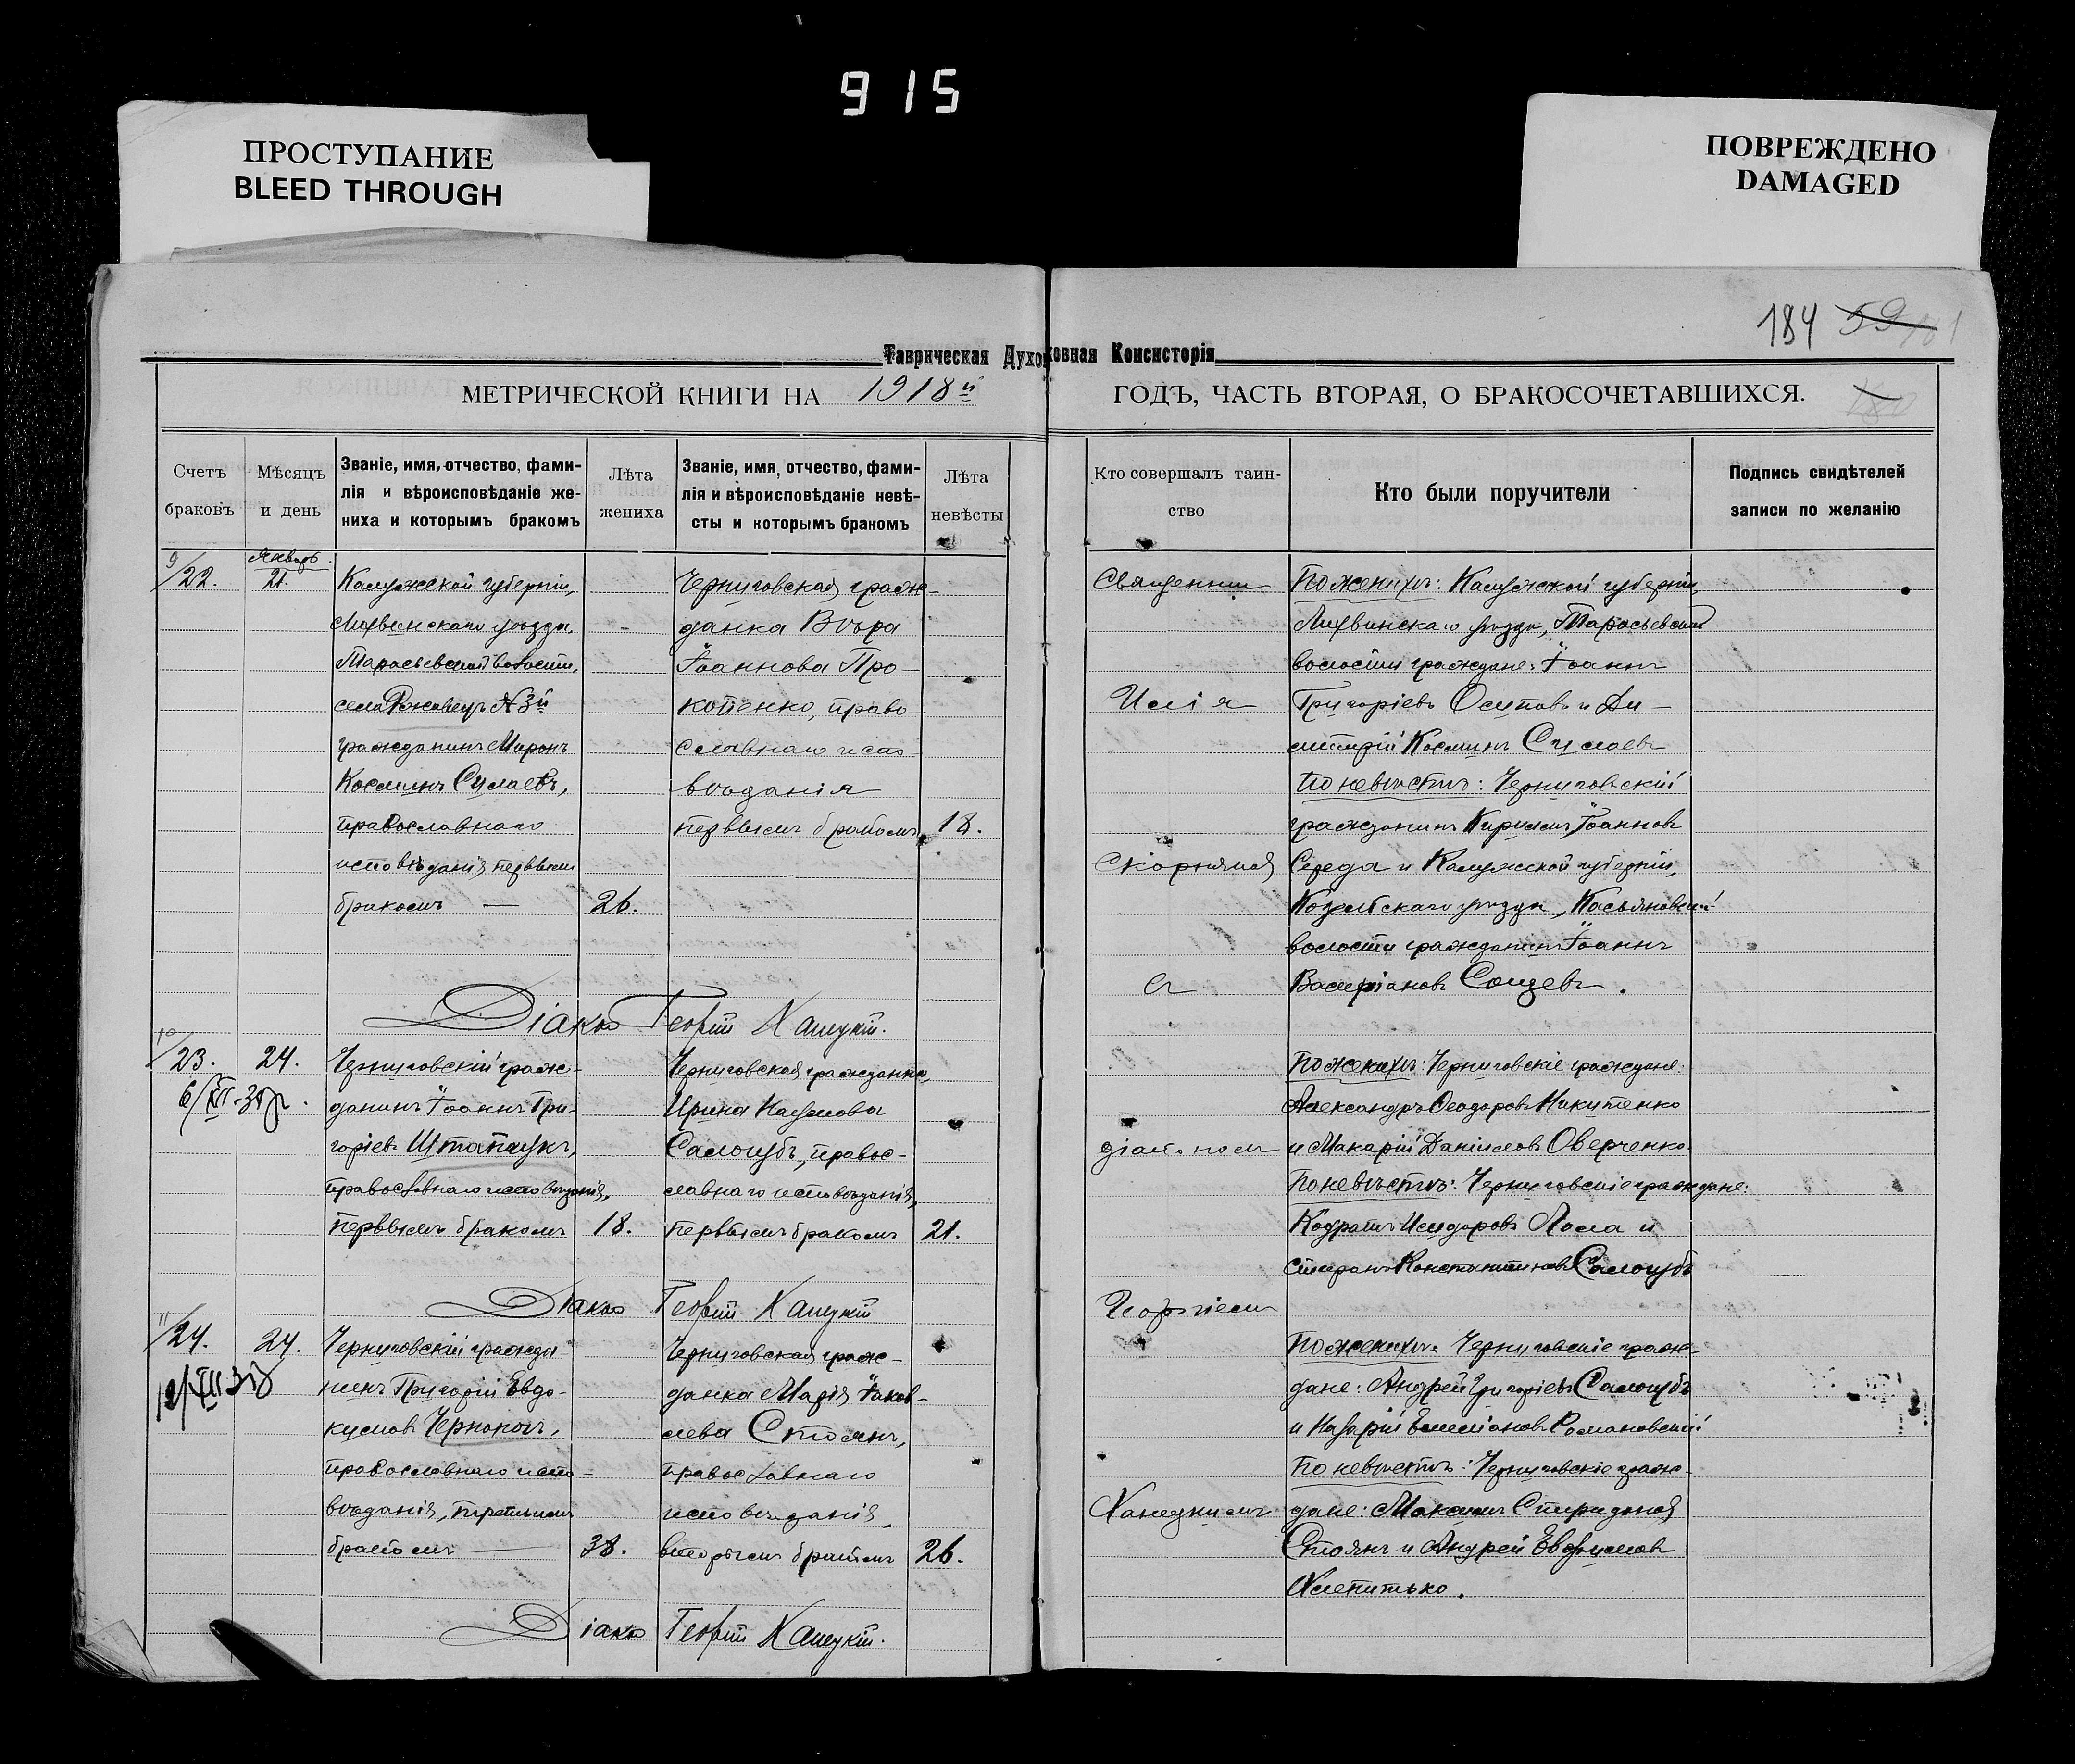 915
ПРОСТУПАНИЕ
BLEED THROUGH
ПОВРЕЖДЕНО
DAMAGED
184 59
Таврическая Духовная Консисторія
МЕТРИЧЕСКОЙ КНИГИ НА 1918й ГОДЪ, ЧАСТЬ ВТОРАЯ, О БРАКОСОЧЕТАВШИХСЯ.
Счетъ браковъ
Мѣсяцъ и день
Званіе, имя, отчество, фами-
лія и вѣроисповѣданіе же-
ниха и которымъ бракомъ
Лѣта жениха
Званіе, имя, отчество, фами-
лія и вѣроисповѣданіе невѣ-
сты и которымъ бракомъ
Лѣта невѣсты
Кто совершалъ таин-
ство
Кто были поручители
Подпись свидѣтелей
записи по желанію
9/22.
Январь
21.
Калужской губерніи,
Лихвинскаго уѣзда,
волости,
села
гражданинъ Миронъ
Косминъ Сумаевъ,
православнаго
исповѣданія первымъ
бракомъ — 26.
Черниговская граж-
данка Вѣра
Іоаннова Про-
копенко, право-
славнаго испо-
вѣданія
первымъ бракомъ 18.
Священни
Илія
По женихѣ: Калужской губерніи,
Лихвинскаго уѣзда,
волости граждане: Іоаннъ
Григоріевъ Осиповъ и Ди-
митрій Косминъ Сумаевъ
По невѣстѣ: Черниговскій
гражданинъ Кириллъ Іоанновъ
Середа и Калужской губерніи,
уѣзда,
волости гражданинъ Іоаннъ
Діаконъ Георгій Халецкій.
10/23. 24.
Черниговскій граж-
данинъ Іоаннъ Гри-
горіевъ Штапаукъ,
православнаго исповѣданія,
первымъ бракомъ 18.
Черниговская гражданка
Ирина Наумова
Салогубъ, правос-
лавнаго исповѣданія,
первымъ бракомъ 21.
діакономъ
По женихѣ: Черниговскіе граждане:
Александръ Ѳеодоровъ Никитенко
и Макарій Даніиловъ Оверченко.
По невѣстѣ: Черниговскіе граждане:
Кодратъ Исидоровъ Лола и
Стефанъ Константиновъ Салогубъ
Діаконъ Георгій Халецкій
Георгіемъ
11/24. 24.
Черниговскій гражда-
нинъ Григорій Евдо-
кимовъ
православнаго испо-
вѣданія, третьимъ
бракомъ — 38.
Черниговская граж-
данка Марія Іаков-
лева Стоянъ,
православнаго
исповѣданія,
вторымъ бракомъ 26.
Халецкимъ
По женихѣ: Черниговскіе граж-
дане: Андрей Григоріевъ Салогубъ
и Назарій Емеліановъ Романовскій
По невѣстѣ: Черниговскіе граж-
дане: Максимъ Спиридоновъ
Стоянъ и Андрей Евфимовъ
Діаконъ Георгій Халецкій.